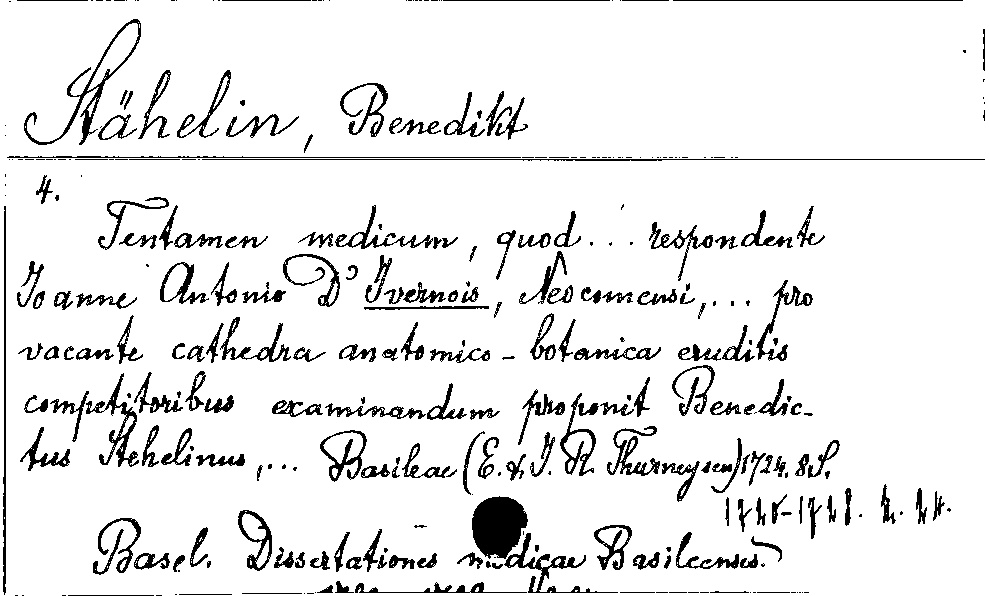 Stähelin, Benedikt
4.
Tentamen medicum, quod... respondente
Joanne Antonio D'Ivernois, Neocomensi,... pro
vacante cathedra anatomico-botanica eruditis
competitoribus examinandum proponit Benedic-
tus Stehelinus,... Basileae (E. & J. R. Thurneysen) 1724. 8 S.
Basel. Dissertationes medicae Basileenses.